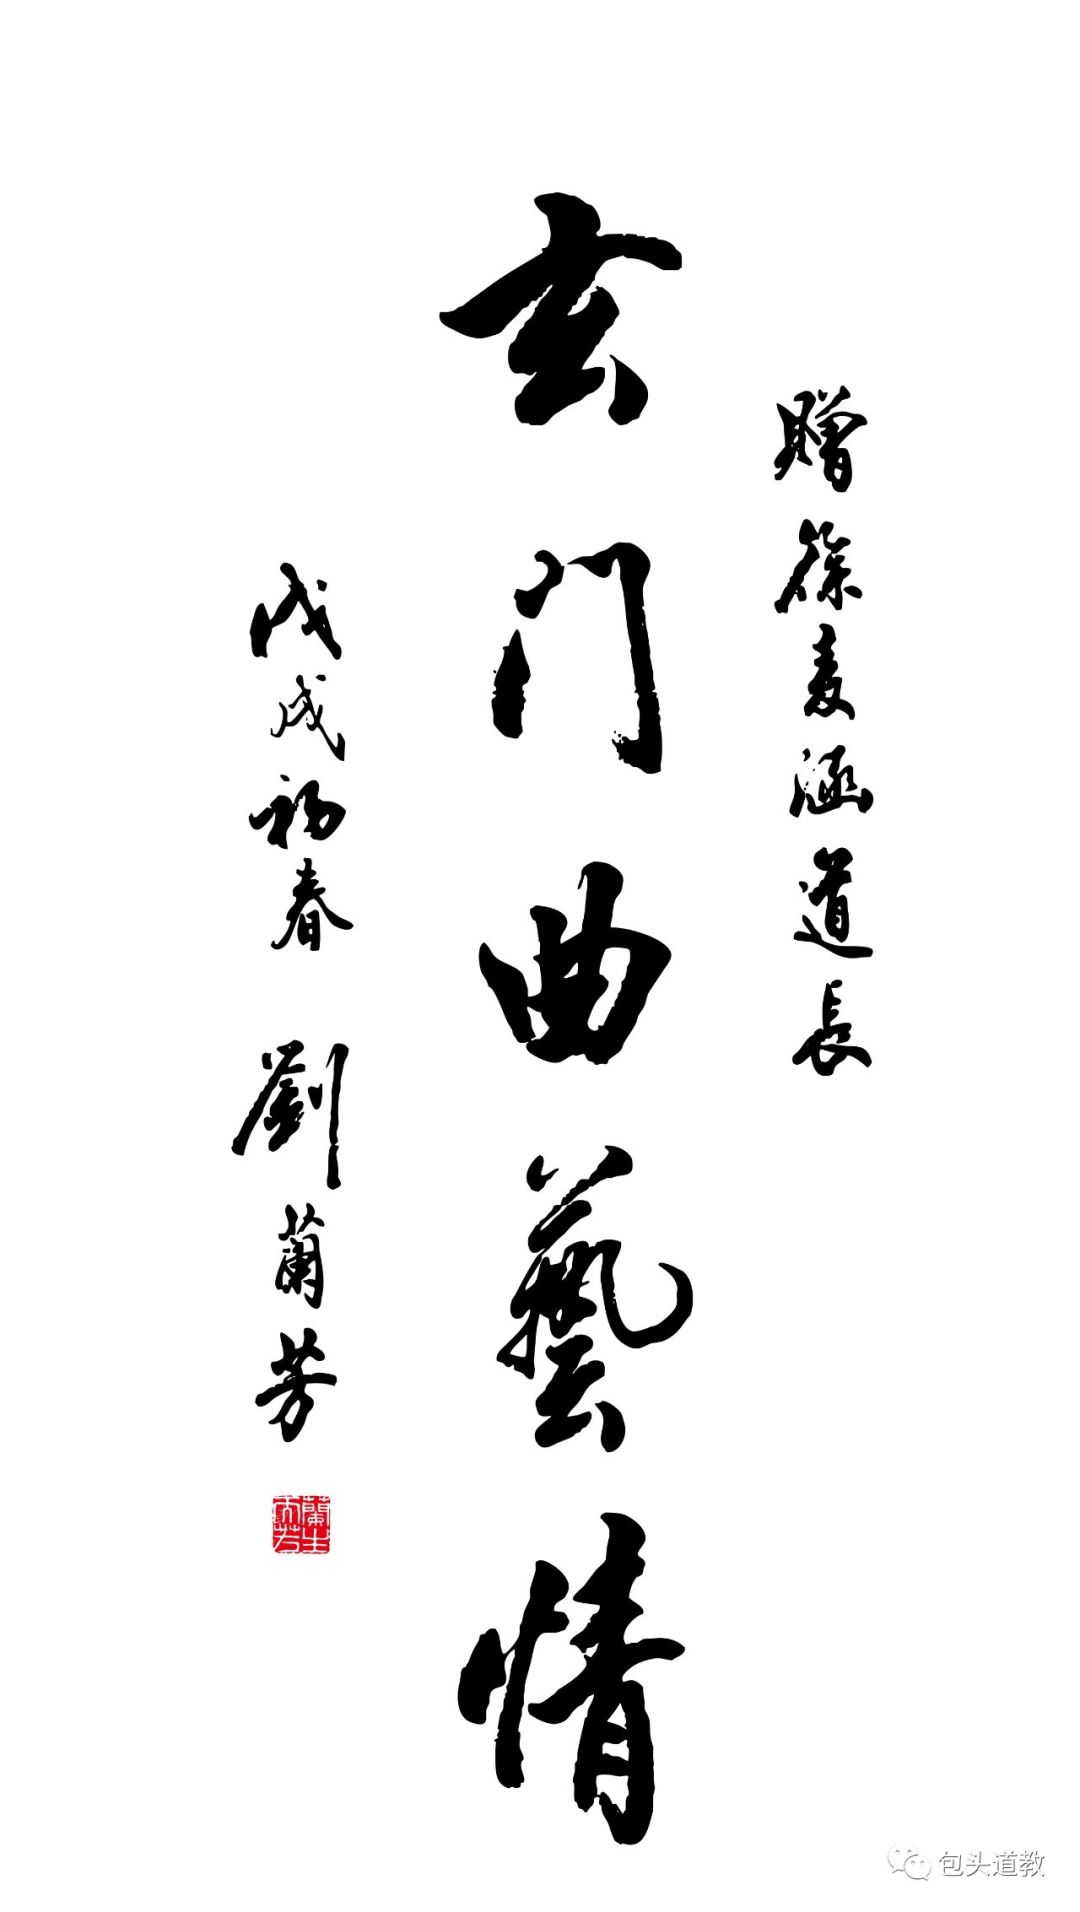 贈徐麦涵道長
玄门曲藝情
戊戌初春 劉蘭芳
包头道教